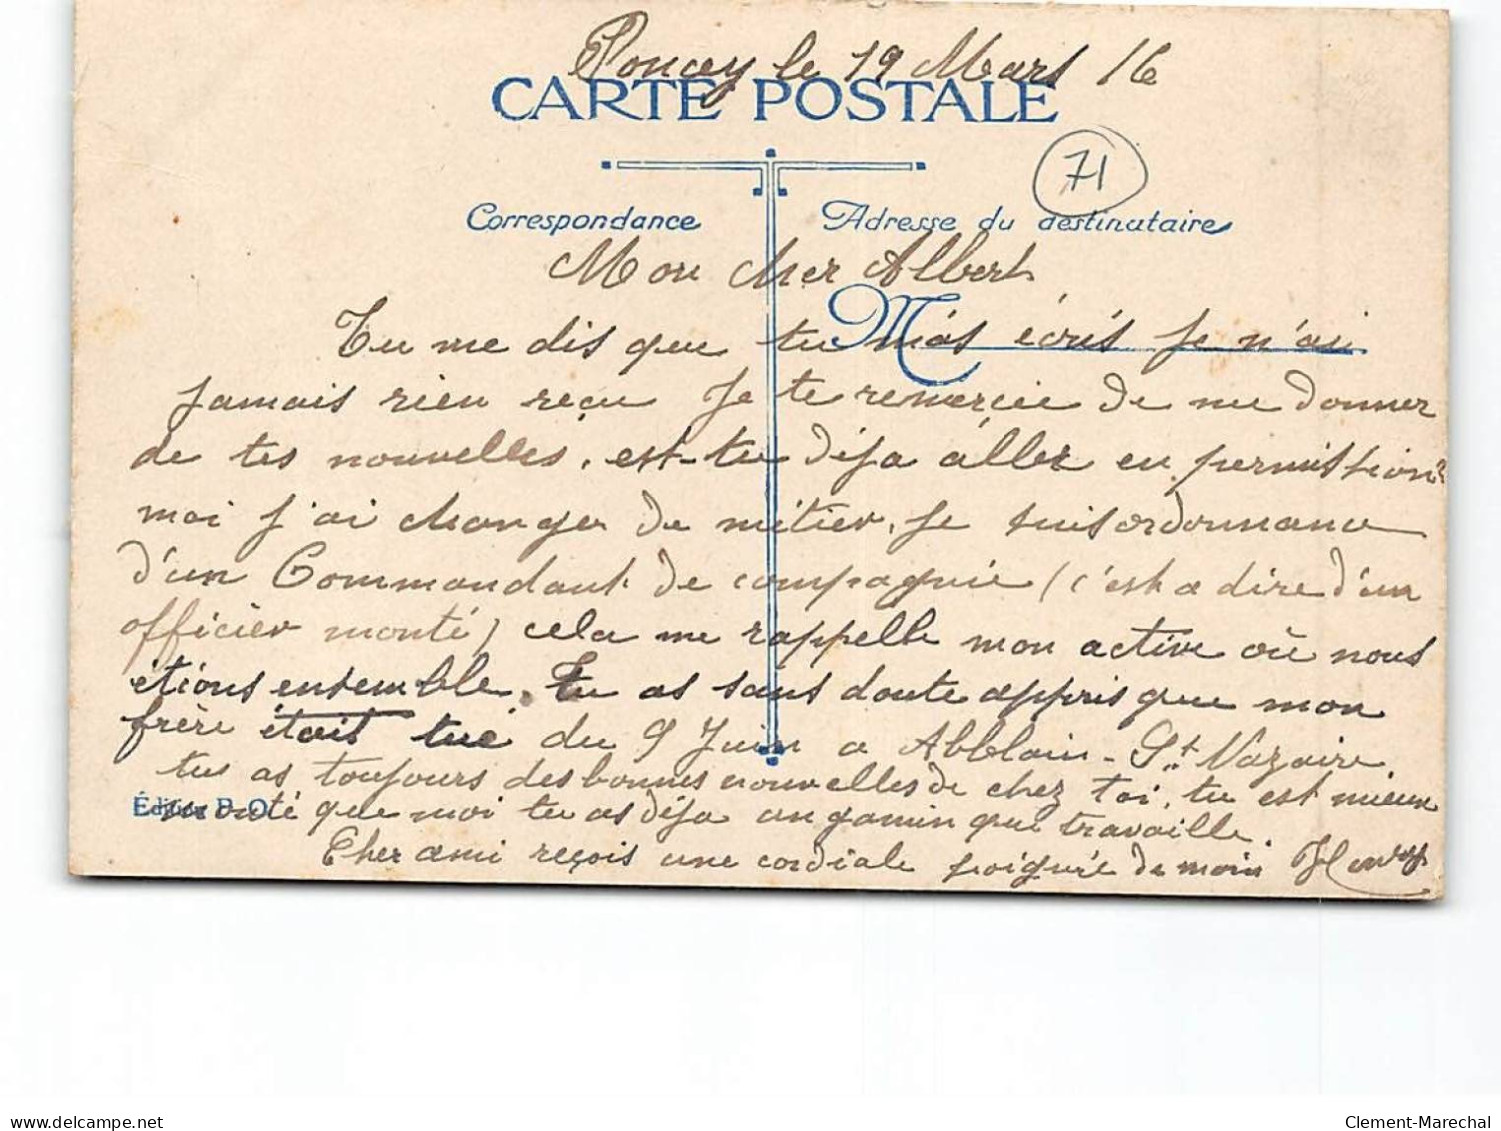 Poncey le 19 Mars 16
CARTE POSTALE
71
Correspondance
Adresse du destinataire
Mon cher Albert
M
Tu me dis que tu m'as écris je n'ai
jamais rien reçu Je te remercie de me donner
de tes nouvelles, est-tu déja àller en permission?
moi j'ai changer de métier, je suis ordonnance
d'un Commandant de compagnie (c'est a dire d'un
officier monté) cela me rappelle mon active où nous
étions ensemble. Tu as sans doute appris que mon
frère était tué du 9 Juin a Abblain-St Nazaire
tu as toujours des bonnes nouvelles de chez toi, tu est mieux
Édition P. O.
monté que moi tu as déja un gamin que travaille.
Cher ami reçois une cordiale poignée de main
delcampe.net
Clement-Marechal